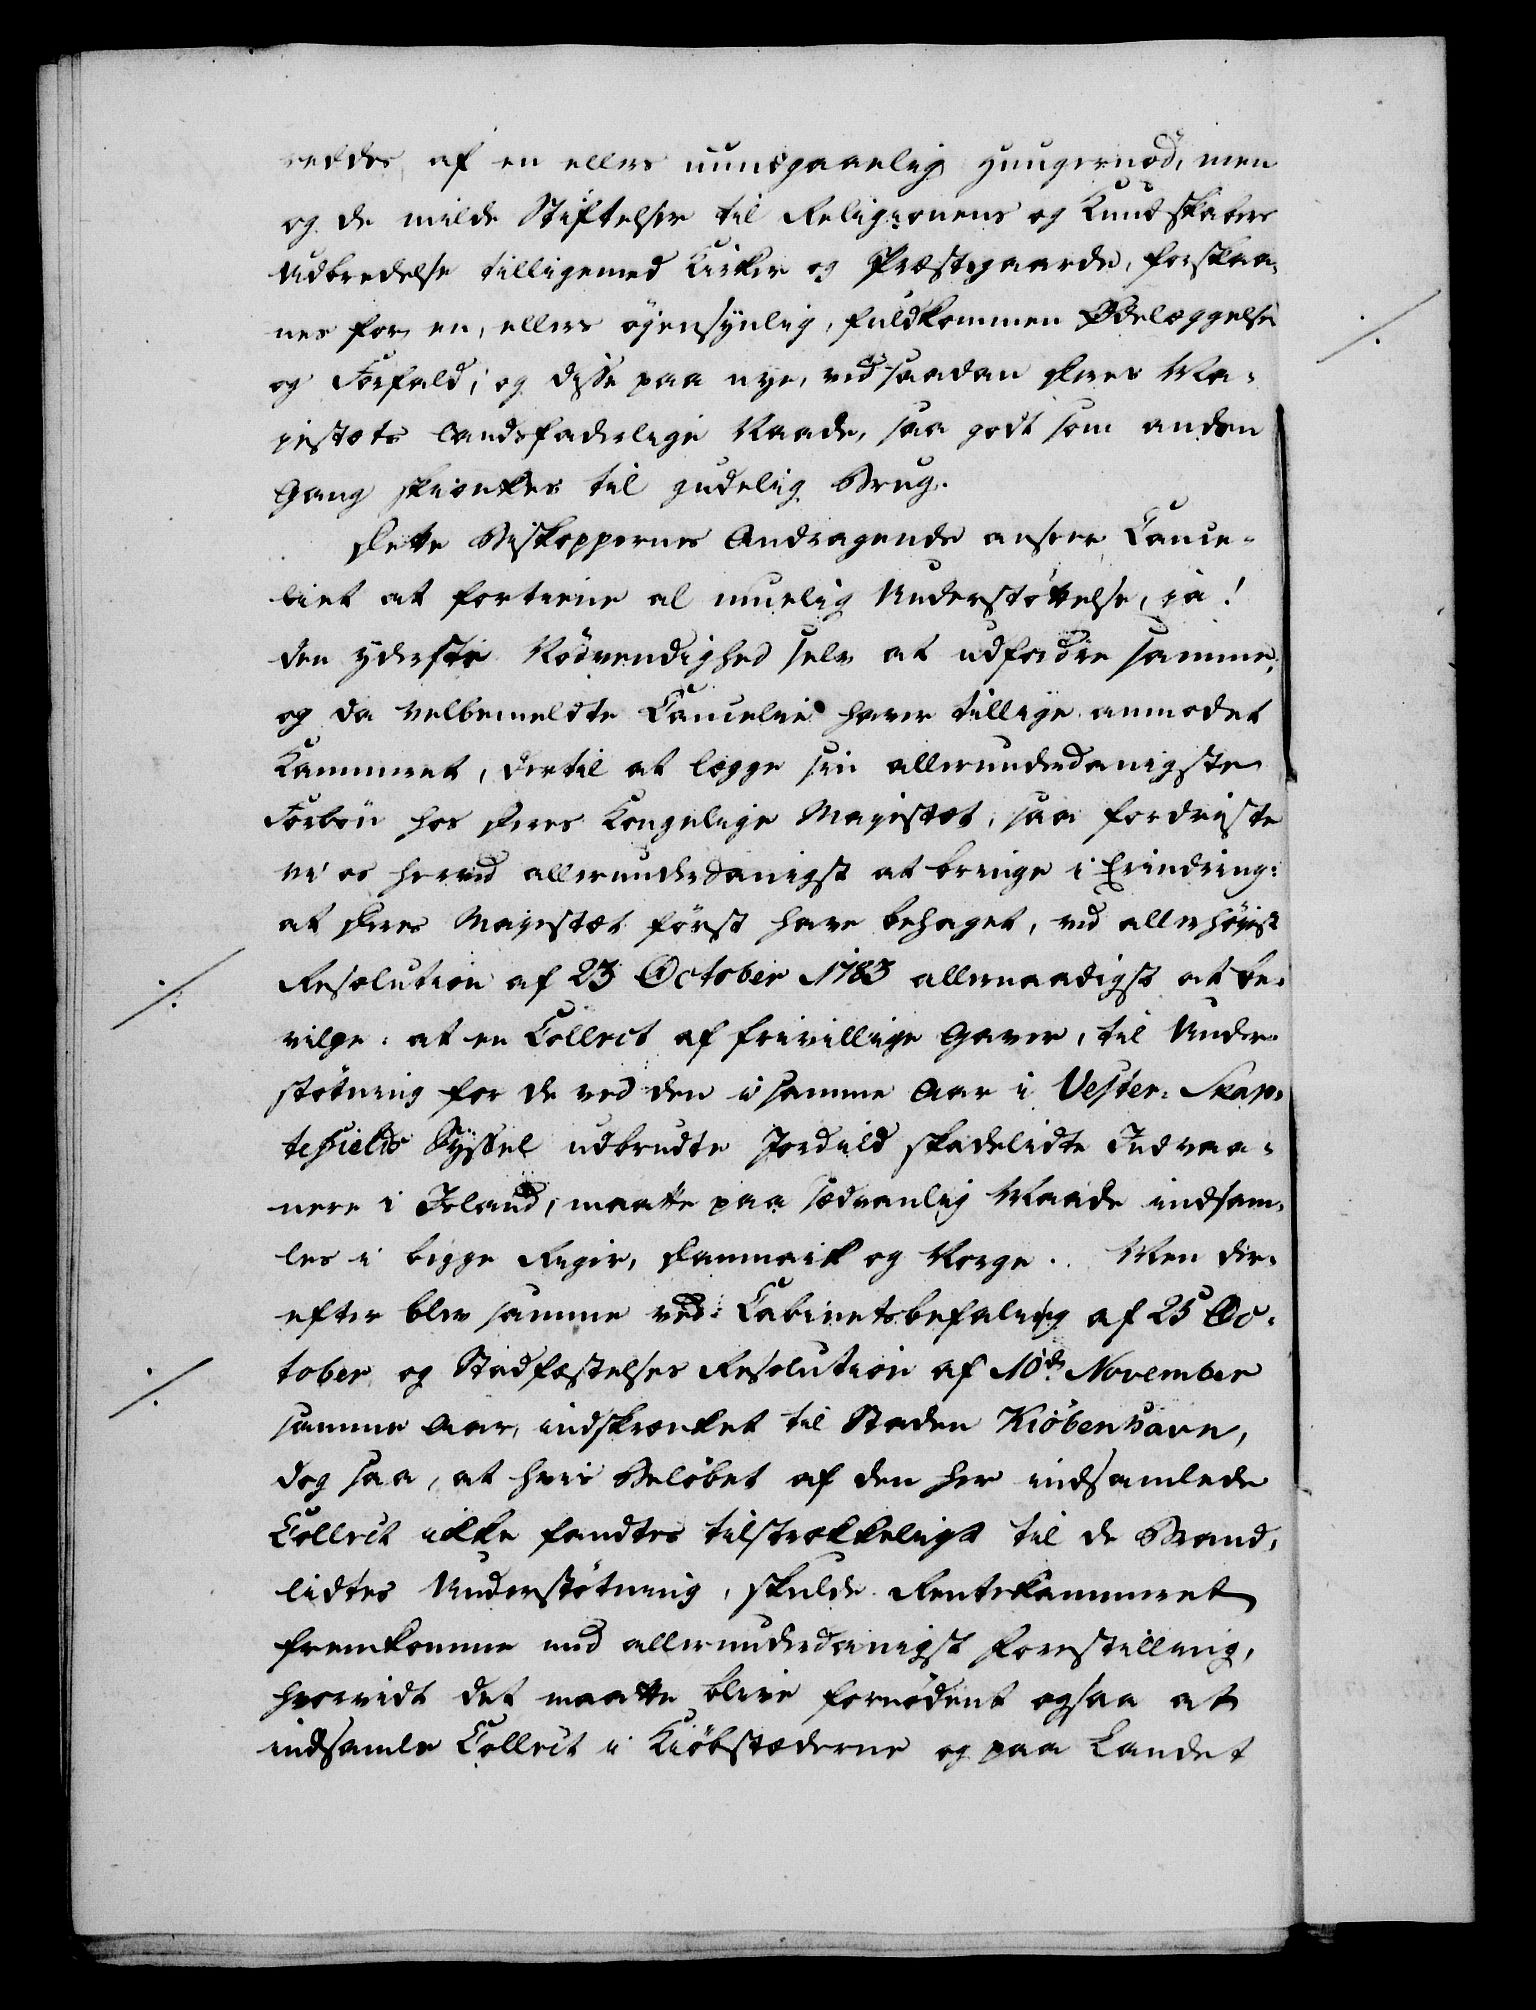 reddes, af en ellers uundgaaelig Hungersnöd, men
og de milde Stiftelser til Religionens og Kundskabers
Udbredelse tilligemed Kirker og Præstegaarde, forskaa-
nes for en, ellers öjensÿnlig, fuldkommen Ødelæggelse
og Forfald; og disse paa nye, ved saadan Deres Ma-
jestæts landsfaderlige Naade, saa godt som anden
Gang skienkes til gudelig Brug.
Dette Biskoppernes Andragende ansees Cance-
liet at fortiene al muelig Understöttelse, ja!
den yderste Nödvendighed selv at udfordre samme,
og da velbemeldte Cancelie haver tillige anmodet
Kammeret, dertil at lægge sin allerunderdanigste
Forbön hos Deres Kongelige Majestæt, saa fordriste
vi os herved allerunderdanigst at bringe i Erindring:
at Deres Majestæt först have behaget, ved allerhöjest
Resolution af 23 October 1783 allernaadigst at be-
vilge: at en Collect af frivillige Gaver, til Under-
stötning for de ved den i samme Aar i Vester-Skap-
tefields Syssel udbrudte Jordild skadelidte Indvaa-
nere i Island, maatte paa sædvanlig Maade indsam-
les i begge Riger, Danmark og Norge. Men der-
efter blev samme ved Cabinetsbefaling af 25 Oc-
tober og Stadfæstelses Resolution af 10de November
samme Aar, indskrænket til Staden Kiöbenhavn,
dog saa, at hvis Belöbet af den her indsamlede
Collect ikke fandtes tilstrækkeligt til de Brand-
lidtes Understötning, skulde Rentekammeret
fremkomme med allerunderdanigst Forestilling,
hvorvidt det maatte blive fornödent ogsaa at
indsamle Collect i Kiöbstæderne og paa Landet